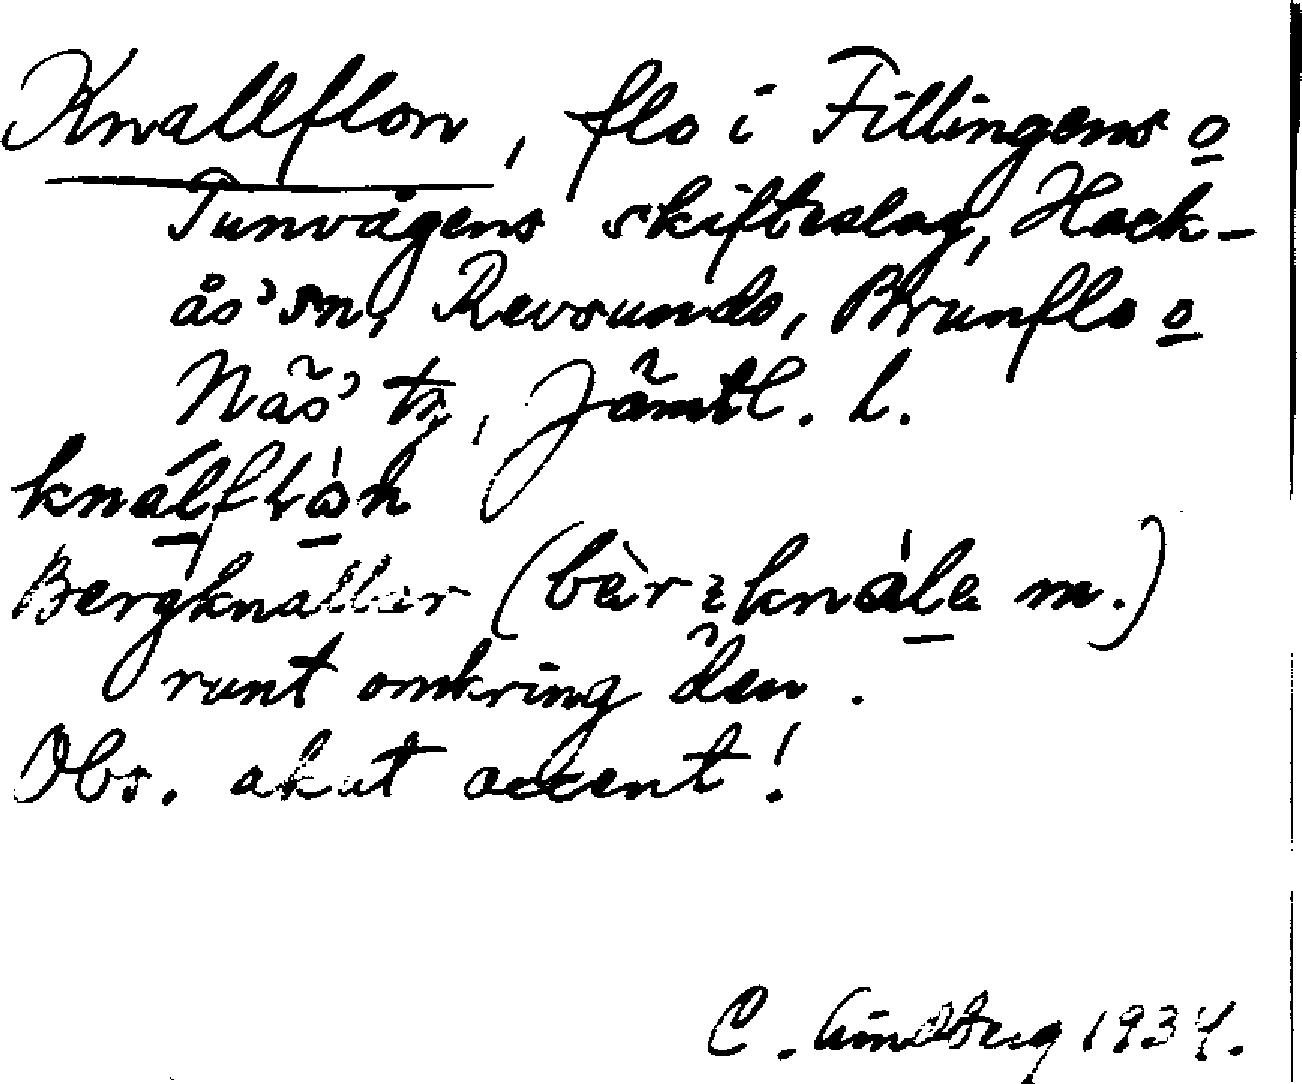 Knallflon, flo i Fillingens o
Tunvågens skifteslag, Hack-
ås' sn, Revsunds, Brunflo o
Näs' tz, Jämtl. l.
Bergknallar (bær knála m.)
runt omkring den.
Obs. akut accent!
C. Lindberg 1934.